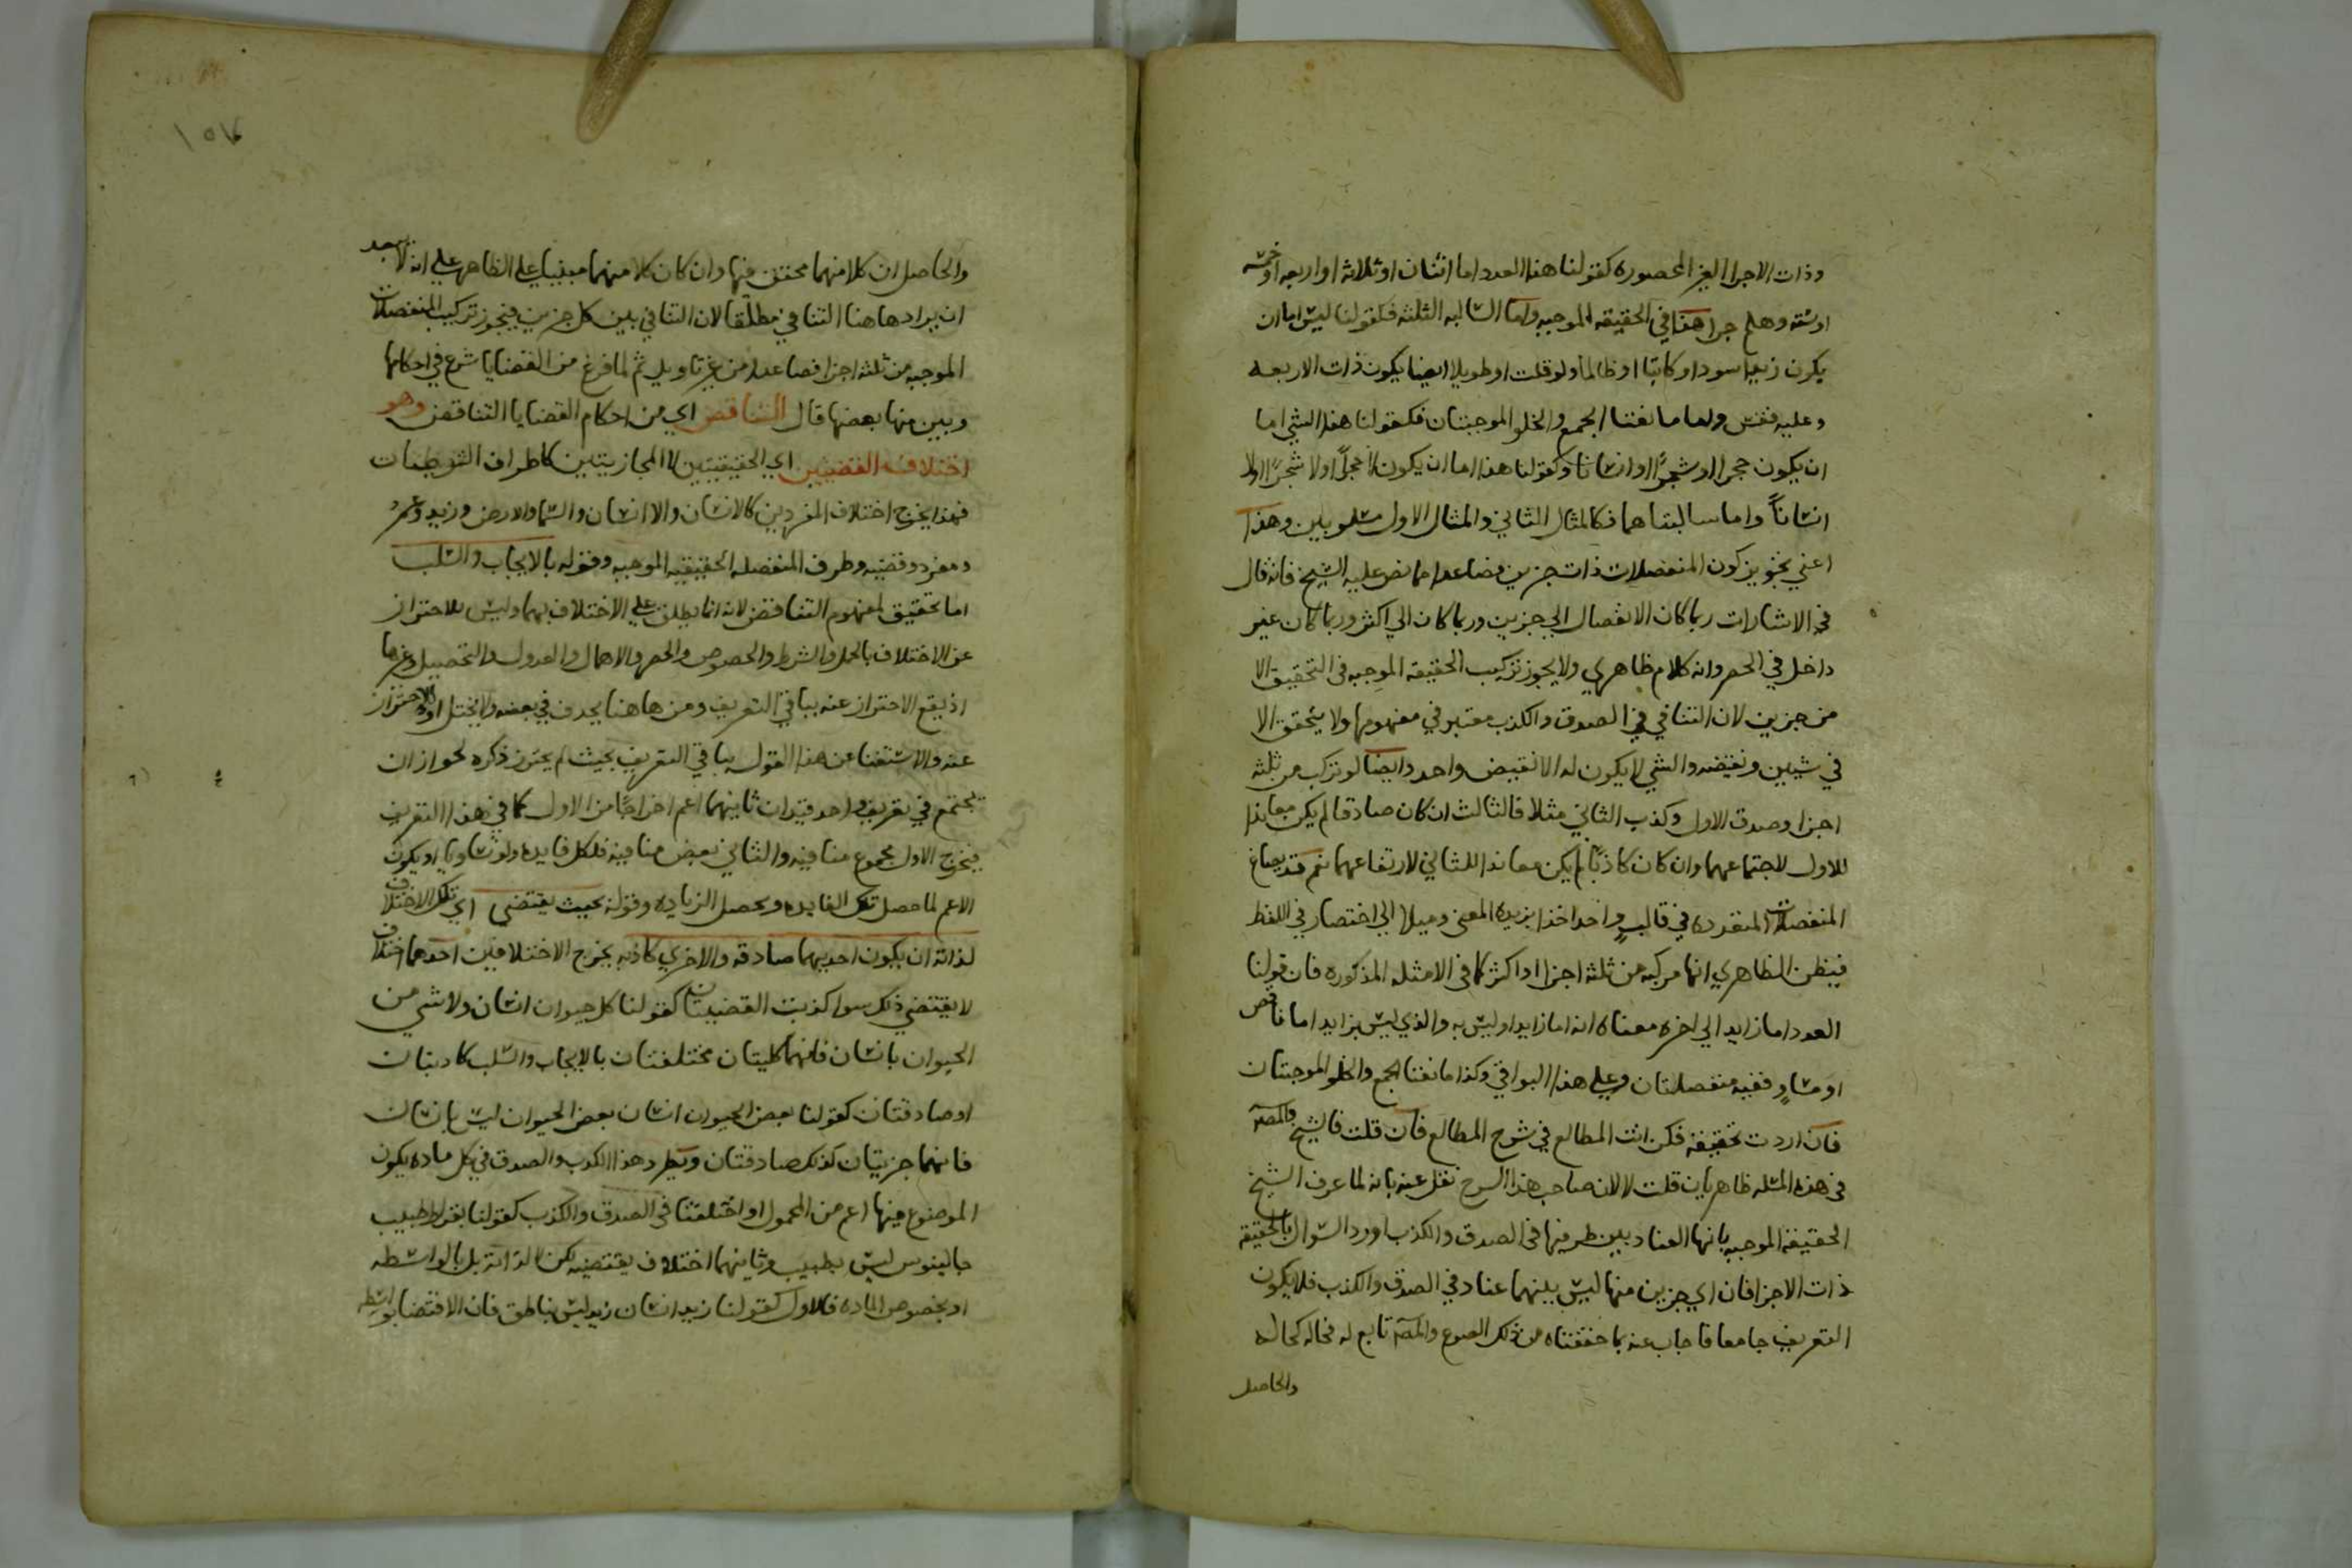 وذات الاجزا الغير المحصوره كقولنا هذا العدد اما اثنان او ثلاثه او اربعه او خمسه
او سته وهلم جرا هذا في الحقيقه الموجبه واما السالبه الثلثه فكقولنا ليس اما ان
يكون زيد اسود او كاتبا او ظالما ولو قلت او طويلا ايضا يكون ذات الاربعه
وعليه فقس واما مانعتا الجمع والخلو الموجبتان فكقولنا هذا الشي اما
ان يكون حجرا او شجرا او انسانا وكقولنا هذا اما ان يكون لا حجرا او لا شجرا او لا
انسانا واما سالبتاهما فكالمثال الثاني والمثال الاول مسلوبين وهذا
اعني تجويز كون المنفصلات ذات جزين فصاعدا مما نص عليه الشيخ فانه قال
في الاشارات ربما كان الانفصال الي جزين وربما كان الي اكثر وربما كان غير
داخل في الحصر وانه كلام ظاهري ولا يجوز تركيب الحقيقه الموجبه في التحقيق الا
من جزين لان التنافي في الصدق والكذب معتبر في مفهومها ولا يتحقق الا
في شيين ونقيضه والشي لا يكون له الا نقيض واحد وايضا لو تركب من ثلثه
اجزا وصدق الاول وكذب الثاني مثلا فالثالث ان كان صادقا لم يكن معاندا
للاول لاجتماعهما وان كان كاذبا لم يكن معاندا للثاني لارتفاعهما نعم قد يصاغ
المنفصلات المتعدده في قالب واحد اخذا بزبدة المعني وميلا الي اختصار في اللفظ
فيظن الظاهري انها مركبه من ثلثه اجزا او اكثر كما في الامثله المذكوره فان قولنا
العدد اما زايد الي اخره معناه انه اما زايد او ليس به والذي ليس بزايد اما ناقص
او مساو ففيه منفصلتان وعلي هذا البواقي وكذا مانعتا الجمع والخلو الموجبتان
فان اردت تحقيقه فكن انت المطالع في شرح المطالع فان قلت فالشيخ والمصـ
في هذه المثله ظاهريان قلت لا لان صاحب هذا الشرح نقل عنه بانه لما عرف الشيخ
الحقيقة الموجبه بانها العناد بين طرفيها في الصدق والكذب اورد السوال بالحقيقه
ذات الاجزا فان اي جزين منها ليس بينهما عناد في الصدق والكذب فلا يكون
التعريف جامعا فاجاب عنه بما حققناه من ذلك والمصـ تابع له فحاله كحاله
والحاصل
والحاصل ان كلا منهما محقق فيها وان كان كلا منهما مبنيا علي الظاهر علي انه لا يبعد
ان يراد هاهنا التنافي مطلقا لان التنافي بين كل جزين فيجوز تركيب المنفصلات
الموجبه من ثلثه اجزا فصاعدا من غير تاويل ثم لما فرغ من القضايا شرع في احكامها
وبين منها بعضها قال التناقض اي من احكام القضايا التناقض وهو
اختلاف القضيتين اي الحقيقيتين لا المجازيتين كاطراف الشرطيات
فهذا يخرج اختلاف المفردين كالانسان والا انسان والسما والارض وزيد وعمرو
ومفرد وقضيه وطرف المنفصله الحقيقيه الموجبه وقوله بالايجاب والسلب
اما تحقيق لمفهوم التناقض لانه انما يطلق علي الاختلاف بهما وليس للاحتراز
عن الاختلاف بالحمل والشرط والخصوص والحصر والاهمال والعدول والتحصيل وغيرها
اذ يقع الاحتراز عنه بباقي التعريف ومن هاهنا يحذف في بعضه ولا يختل او الاحتراز
عنه والاستغنا عن هذا القول بباقي التعريف بحيث لم يحترز ذكره لجواز ان
يجتمع في تعريف واحد قيدان ثانيهما اعم اخراجا من الاول كما في هذا التعريف
فيخرج الاول مجموع منافيه والثاني بعض منافيه فلكل فايده ولو تساويا او يكون
الاعم لما حصل تلك الفايده ويحصل الزياده وقوله بحيث يقتضي اي ذلك الاختلاف
لذاته ان يكون احديهما صادقه والاخري كاذبه يخرج الاختلافين احدهما اختلاف
لا يقتضي ذلك سوا كذبت القضيتان كقولنا كل حيوان انسان ولا شي من
الحيوان بانسان فانهما كليتان مختلفتان بالايجاب والسلب كاذبتان
او صادقتان كقولنا بعض الحيوان انسان بعض الحيوان ليس بانسان
فانهما جزيتان كذلك صادقتان ويطرد هذا الكذب والصدق في كل ماده يكون
الموضوع فيها اعم من المحمول او اختلفتا في الصدق والكذب كقولنا بقراط طبيب
جالينوس ليس بطبيب وثانيهما اختلاف يقتضيه لكن لا لذاته بل بالواسطه
او بخصوص الماده فالاول كقولنا زيد انسان زيد ليس بناطق فان الاقتضا بواسطه